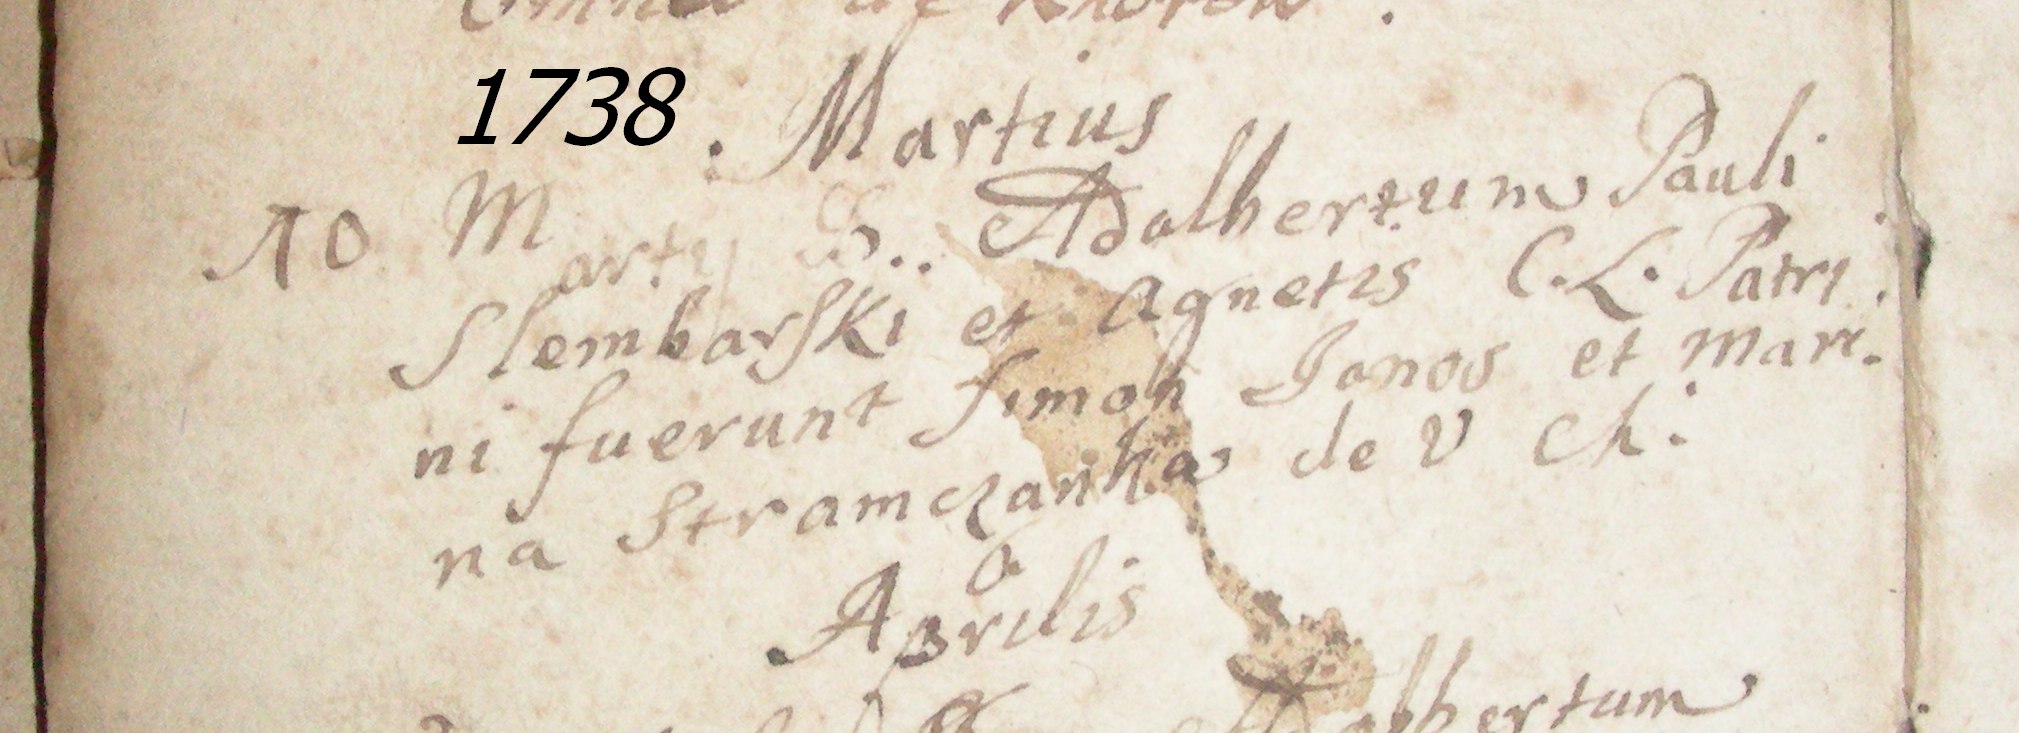 1738 Martius
10 Martij B.. Adalbertum Pauli
Slembarski et Agnetis C.L. Patri
ni fuerunt Simon Janos et Mari
na Stramczanka de V Ch:
Aprilis
Adalbertum